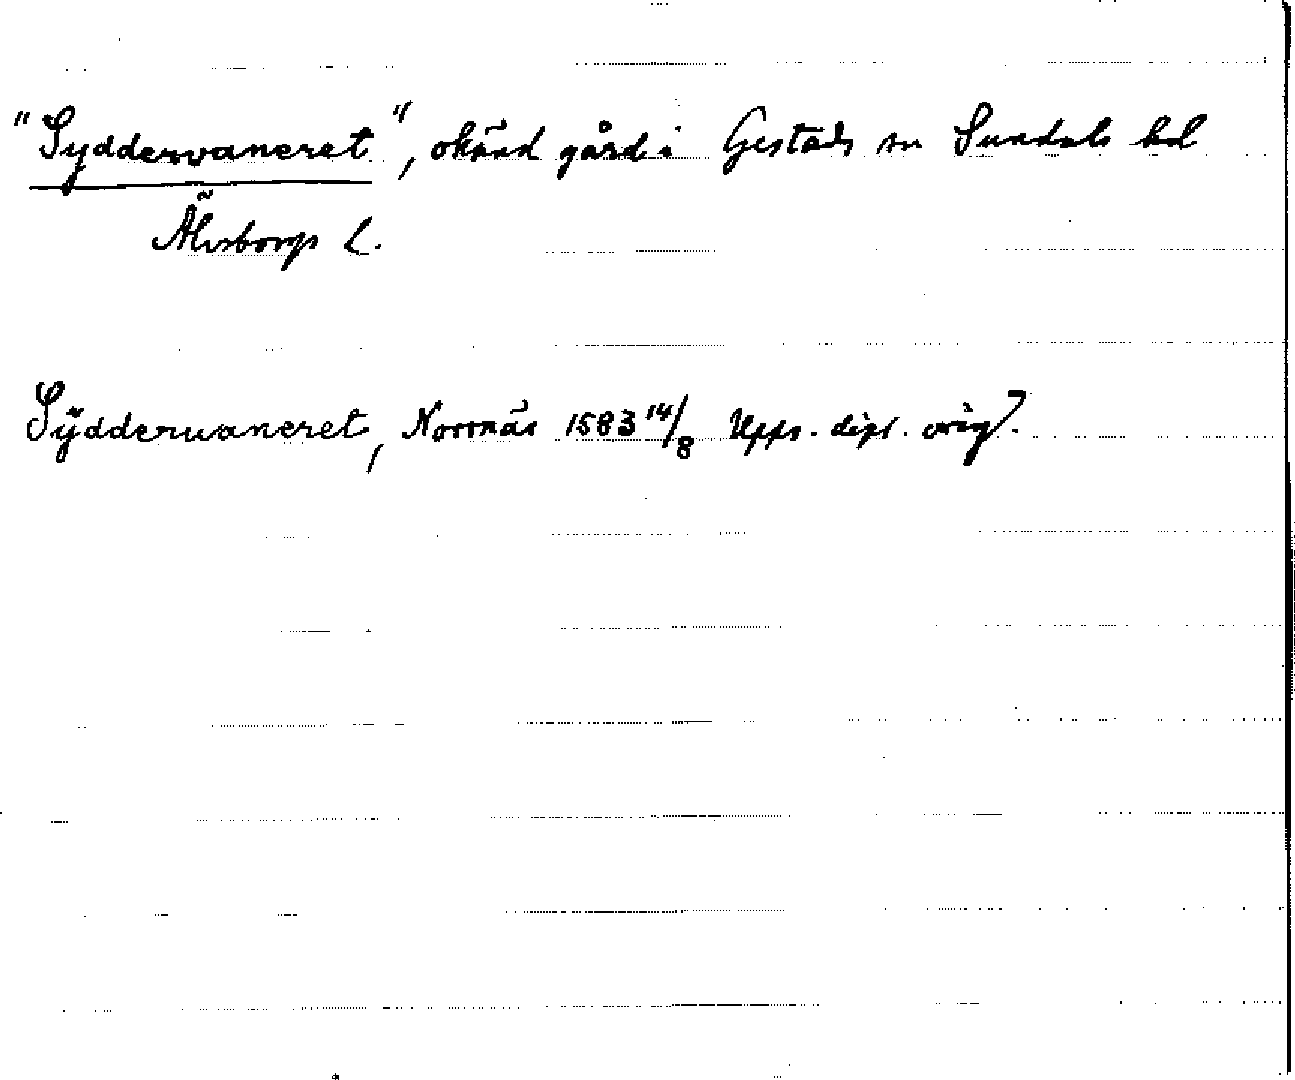 "Syddervaneret", okänd gård i Gestads sn Sundals hd
Älvsborgs l.
Sÿdderuaneret, Norrnäs 1583 14/8 Upps. dipl. orig?.